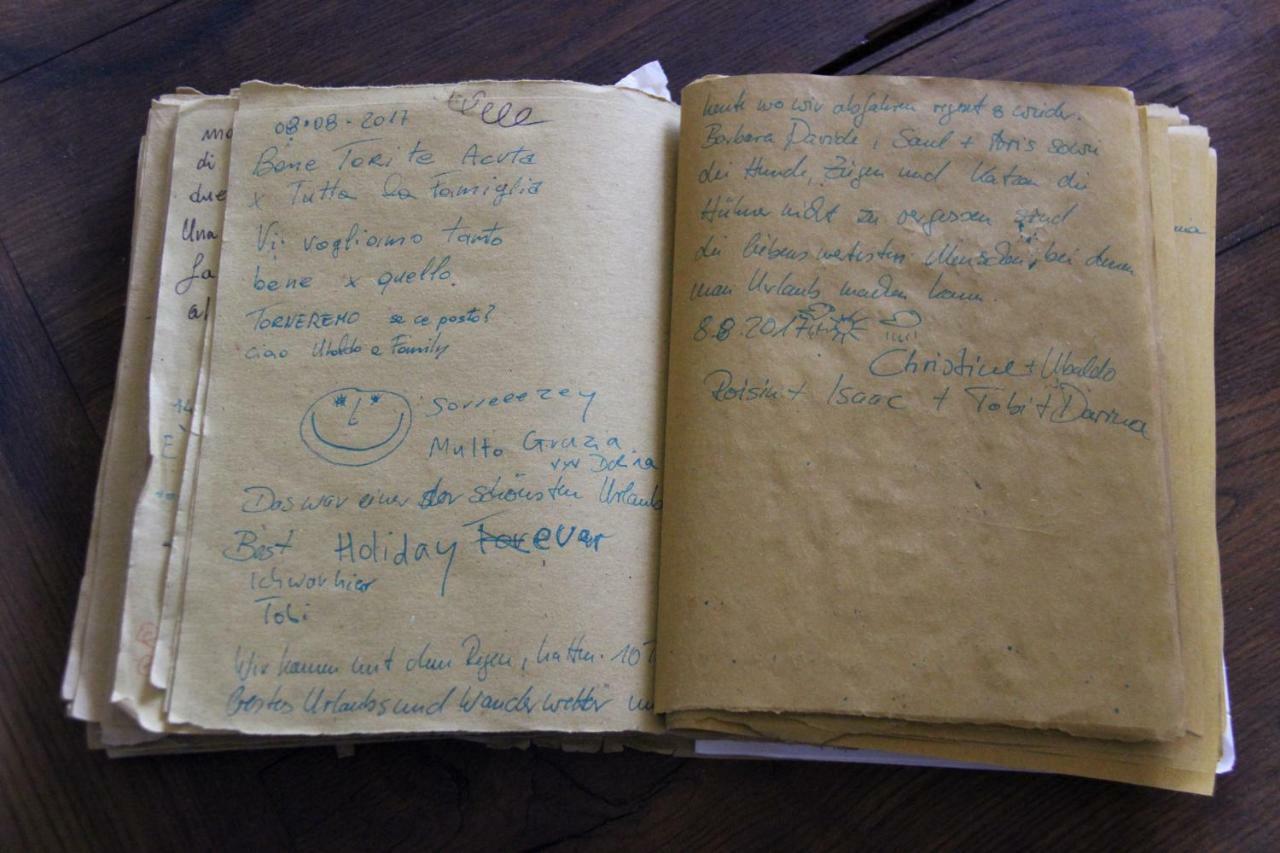 mo
di
due
Una
al
08.08.2017
Bene Torite Acuta
x Tutta la Famiglia
Vi vogliamo tanto
bene x quello.
TORNEREMO se ce posto?
ciao Ubaldo e Family
Sorreeezey
Multo Grazia
Das war einer der schönsten Urlaub
Best Holiday Forever
Ich war hier
Tobi
Wir kamen mit dem Regen, hatten 10 T
bestes Urlaubs und Wanderwetter un
heute wo wir abfahren regnet es wieder.
Barbara Davide, Saul + Doris sowie
die Hunde, Ziegen und Katzen die
Hühner nicht zu vergessen sind
die liebenswertesten Menschen, bei denen
man Urlaub machen kann.
8.8.2017
Christine + Ubaldo
Roisin + Isaac + Tobi + Darina